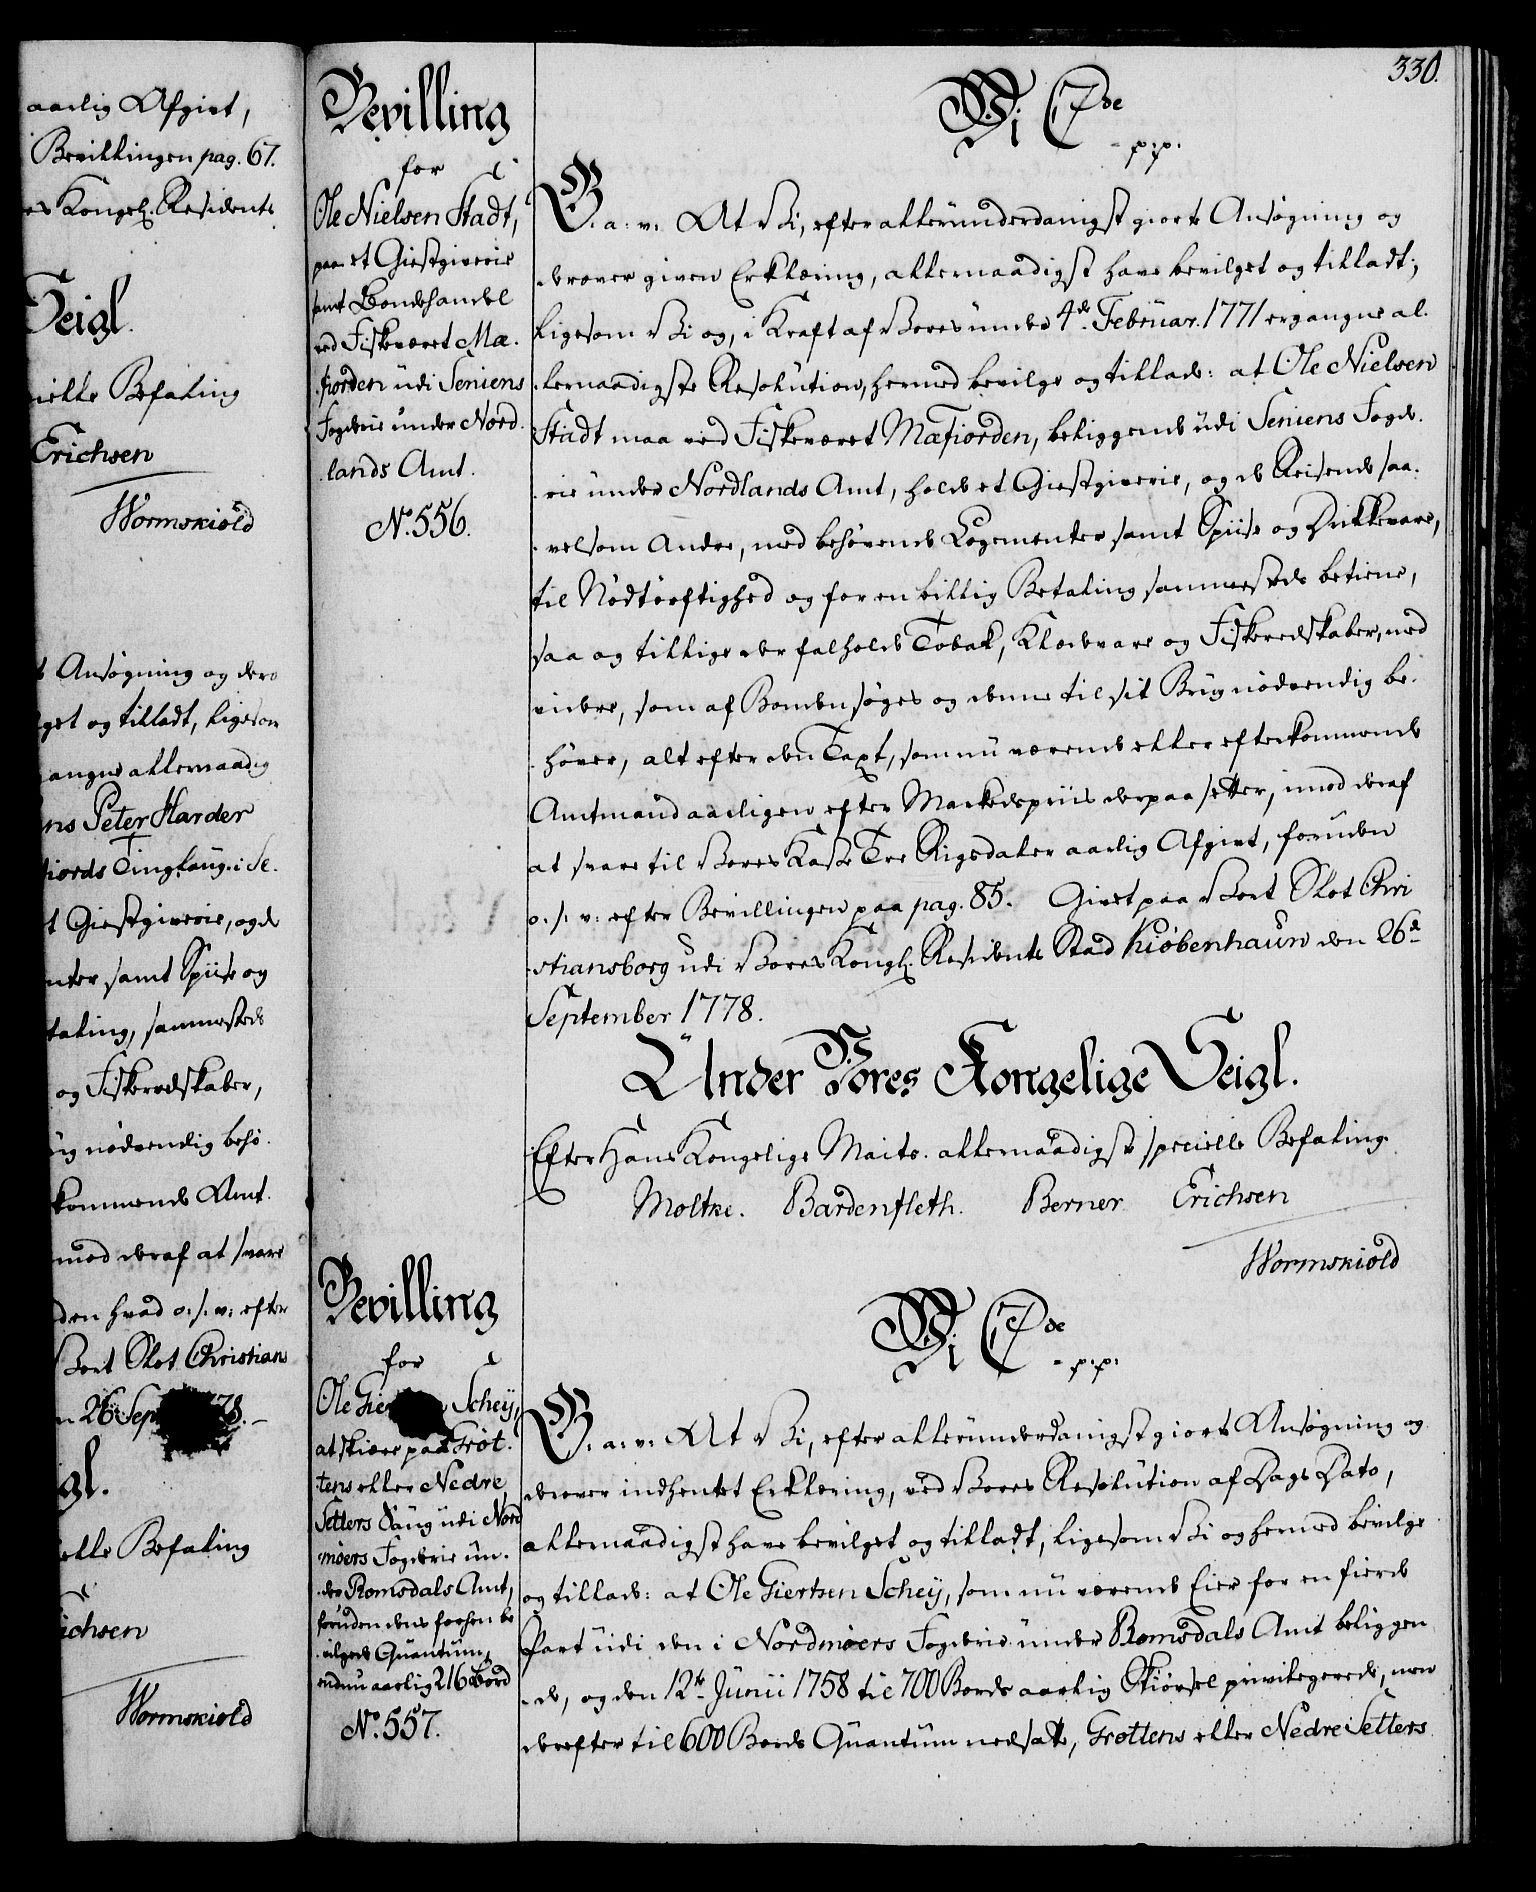 aarlig Afgivt,
Bevillingen pag. 67.
es Kongel. Residents
Seigl.
cielle Befaling
Erichsen
Wormskiold
t Ansøgning og dero
get og tilladt, ligesom
angne allernaadig
ns Peter Harder
fiords Tinglaug i Se.
t Giestgiverie, og de
nter samt Spiise og
taling, sammesteds
og Fiskeredskaber,
ug nødvendig behø.
kommende Amt.
mod deraf at svare
den hvad o. s. v: efter
Vort Slot Christians
n 26 Sep 78.
gl.
elle Befaling
ichsen
Wormskiold
330.
Bevilling
for
Ole Nielsen Stadt,
paa et Giestgiverie
samt Bondehandel
ved Fiskeværet Mæ.
fiorden udi Seniens
Fogderie under Nord.
lands Amt.
No. 556.
Vi C 7de
p:p:
G. a: v: At Vi, efter allerunderdanigst giorte Ansøgning og
derover given Erklæring, allernaadigst have bevilget og tilladt,
ligesom Vi og, i Kraft af Vores under 4de Februar. 1771 ergangne al.
lernaadigste Resolution, hermed bevilge og tillade: at Ole Nielsen
Stadt maa ved Fiskeværet Mæfiorden, beliggende udi Seniens Fogde.
rie under Nordlands Amt, holde et Giestgiverie, og de Reisende saa.
velsom Andre, med behøvende Logementer samt Spiise og Drikkevare,
til Nødtørftighed og for en billig Betaling sammesteds betiene,
saa og tillige der falholde Tobak, Kledevare og Fiskeredskaber, med
videre, som af Bonden søges og denne til sit Brug nødvendig be.
høver, alt efter den Taxt, som nu værende eller efterkommende
Amtmand aarligen efter Markedspriis derpaa setter, imod deraf
at svare til Vores Kasse Tre Rigsdaler aarlig Afgivt, foruden
o. s. v: efter Bevillingen paa pag. 85. Givet paa Vort Slot Chri
stiansborg udi Vores Kongl. Residents Stad Kiøbenhaun den 26de
September 1778.
Under Vores Kongelige Seigl.
Efter Hans Kongelige Maits. allernaadigste specielle Befaling.
Moltke. Bardenfleth. Berner Erichsen
Wormskiold
Bevilling
for
Ole Gier Schey,
at skiære paa Grøt.
tens eller Nedre
Setters Saug udi Nord
møers Fogderie un.
der Romsdals Amt,
foruden dens forhen be
vilgede Quantum,
endnu aarlig 216 Bord
No. 557.
Vi C 7de
p:p:
G. a: v: At Vi, efter allerunderdanigst giorte Ansøgning og
derover indhentet Erklæring, ved Vores Resolution af Dags Dato,
allernaadigst have bevilget og tilladt, ligesom Vi og hermed bevilge
og tillade: at Ole Giertsen Schey, som nu værende Eier for en fierde
Part udi den i Nordmøers Fogderie under Romsdals Amt beliggen
de, og den 12te Junii 1758 til 700 Bords aarlig Skiørsel privilegerede, men
derefter til 600 Bords Quantum nedsatte, Grøttens eller Nedre Setters